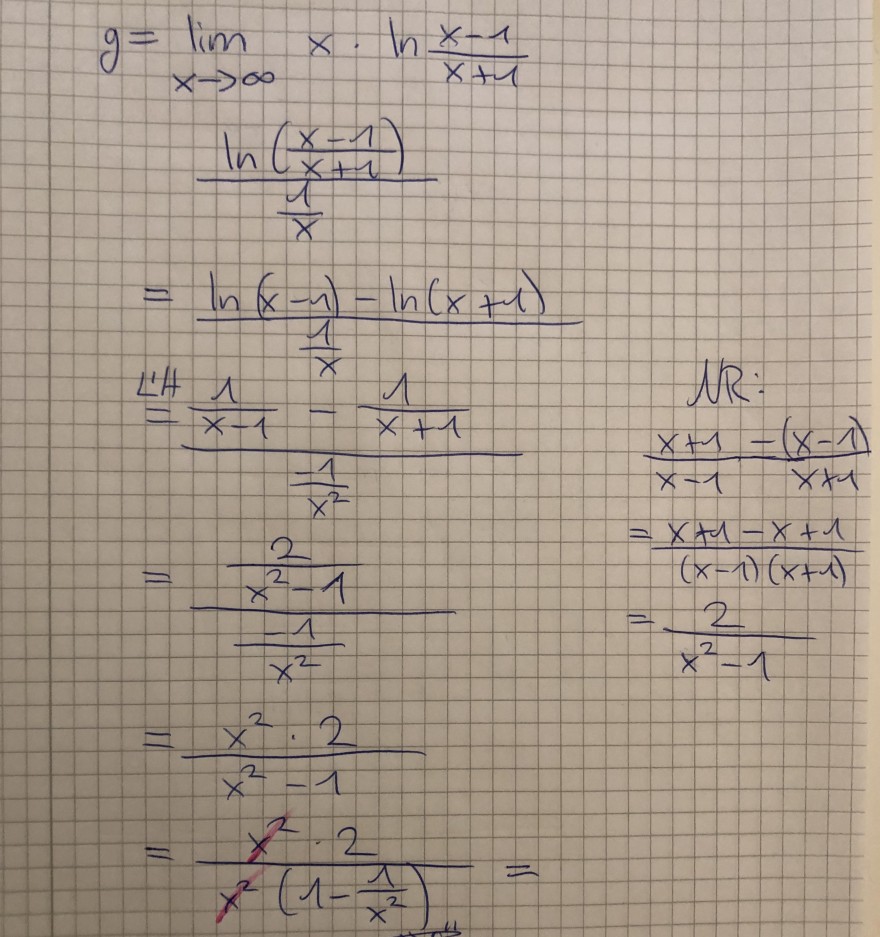 g = lim x→∞ x · ln (x-1)/(x+1)
ln((x-1)/(x+1)) / (1/x)
= (ln(x-1) - ln(x+1)) / (1/x)
L'H = (1/(x-1) - 1/(x+1)) / (-1/x²)
= (2/(x²-1)) / (-1/x²)
= (x² · 2)/(x²-1)
= (x² · 2)/(x²(1 - 1/x²)) =
NR:
x+1 -(x-1)
x-1 x+1
= (x+1-x+1)/((x-1)(x+1))
= 2/(x²-1)